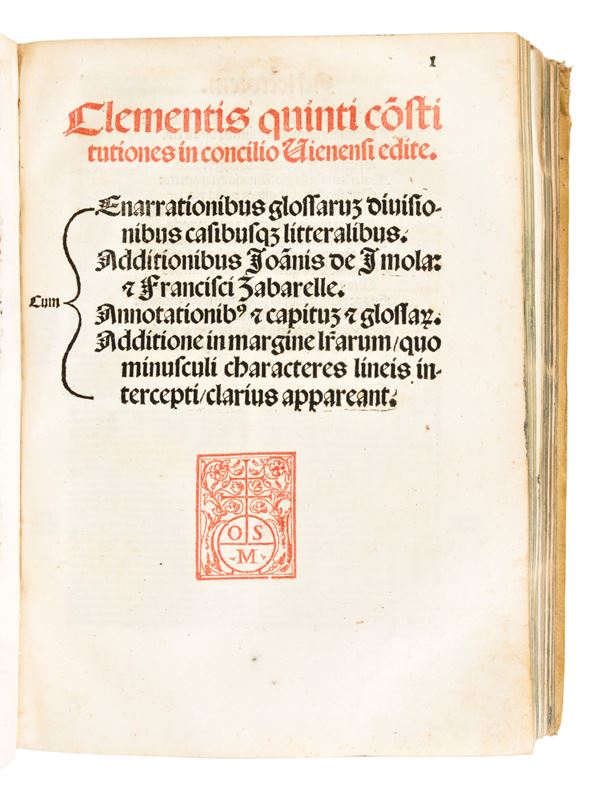 1
Clementis quinti cõsti
tutiones in concilio Uienensi edite.
Enarrationibus glossaruꝫ diuisio-
nibus casibusqꝫ litteralibus.
Additionibus Joãnis de Jmola:
⁊ Francisci Zabarelle.
Cum
Annotationibꝰ ⁊ capituꝫ ⁊ glossaꝝ.
Additione in margine lr̃arum/quo
minusculi characteres lineis in-
tercepti/clarius appareant.
O S
M